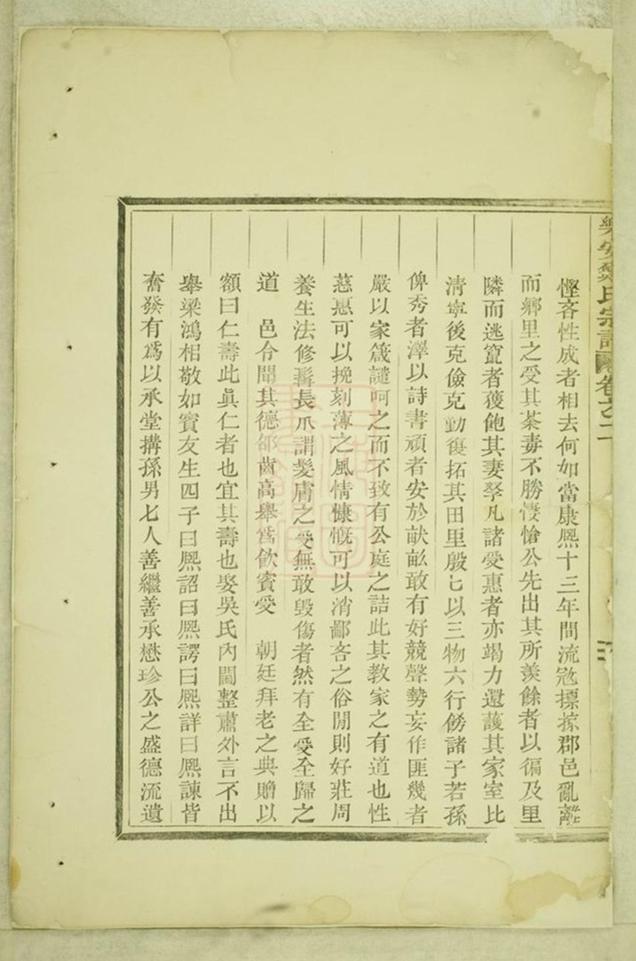 樂安 氏宗譜 卷之二
慳吝性成者相去何如當康熙十三年間流寇摽掠郡邑亂離
而鄉里之受其荼毒不勝悽愴公先出其所羨餘者以徧及里
隣而逃竄者獲飽其妻孥凡諸受惠者亦竭力還護其家室比
清寧後克儉克勤復拓其田里殷七以三物六行傍諸子若孫
俾秀者澤以詩書頑者安於畎畝敢有好競聲勢妄作匪幾者
嚴以家箴譴呵之而不致有公庭之詰此其教家之有道也性
慈惠可以挽刻薄之風情慷慨可以消鄙吝之俗閒則好莊周
養生法修髯長爪謂髮膚之受無敢毀傷者然有全受全歸之
道 邑令聞其德邵齒高舉爲飲賓受 朝廷拜老之典贈以
額曰仁壽此眞仁者也宜其壽也娶吳氏內閫整肅外言不出
舉梁鴻相敬如賓友生四子曰熙詔曰熙諤曰熙詳曰熙諫皆
奮發有爲以承堂搆孫男七人善繼善承懋珍公之盛德流遺